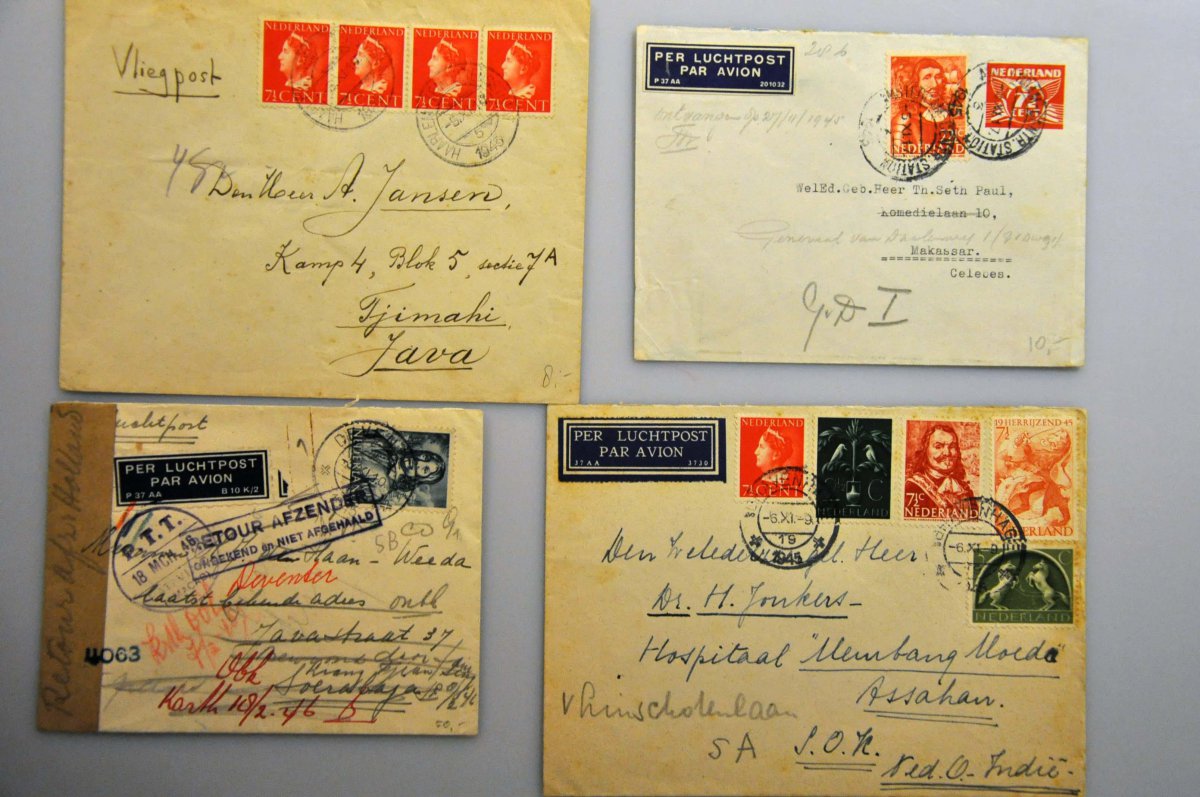 Vliegpost
NEDERLAND NEDERLAND NEDERLAND NEDERLAND
7½ CENT 7½ CENT 7½ CENT 7½ CENT
HAARLEM
1945
48
Den Heer A. Jansen,
Kamp 4, Blok 5, sectie 7A
Tjimahi,
Java
8.-
PER LUCHTPOST
PAR AVION
P 37 AA 201032
NEDERLAND
NEDERLAND
7½
CENT
1945
STATION
ontvangen op 27/11/1945
WelEd.Geb.Heer Th.Seth Paul,
Komedielaan 10,
Generaal van Daalenweg
Makassar.
Celebes.
I
10.-
Retour afz. Holland
Luchtpost
PER LUCHTPOST
PAR AVION
P 37 AA B 10 K/2
P.T.T.
18 MCH. 46
RETOUR AFZENDER
ONBEKEND en NIET AFGEHAALD
Haan - Weeda
Deventer
laatst bekende adres
Javastraat 37
Soerabaja
4063
Obl
18/2.46
50.-
PER LUCHTPOST
PAR AVION
37 AA 3730
NEDERLAND
7½ CENT
C
7½ C
NEDERLAND
19 HERRIJZEND 45
7½ C
NEDERLAND
NEDERLAND
-6.XI.-9.
19
1945
-6.XI.-9.
Den Weledel gel. Heer
Dr. H. Jonkers-
Hospitaal "Membang Moeda
Assahan.
v Linschotenlaan
5A
S.O.K.
Ned. O. Indië-